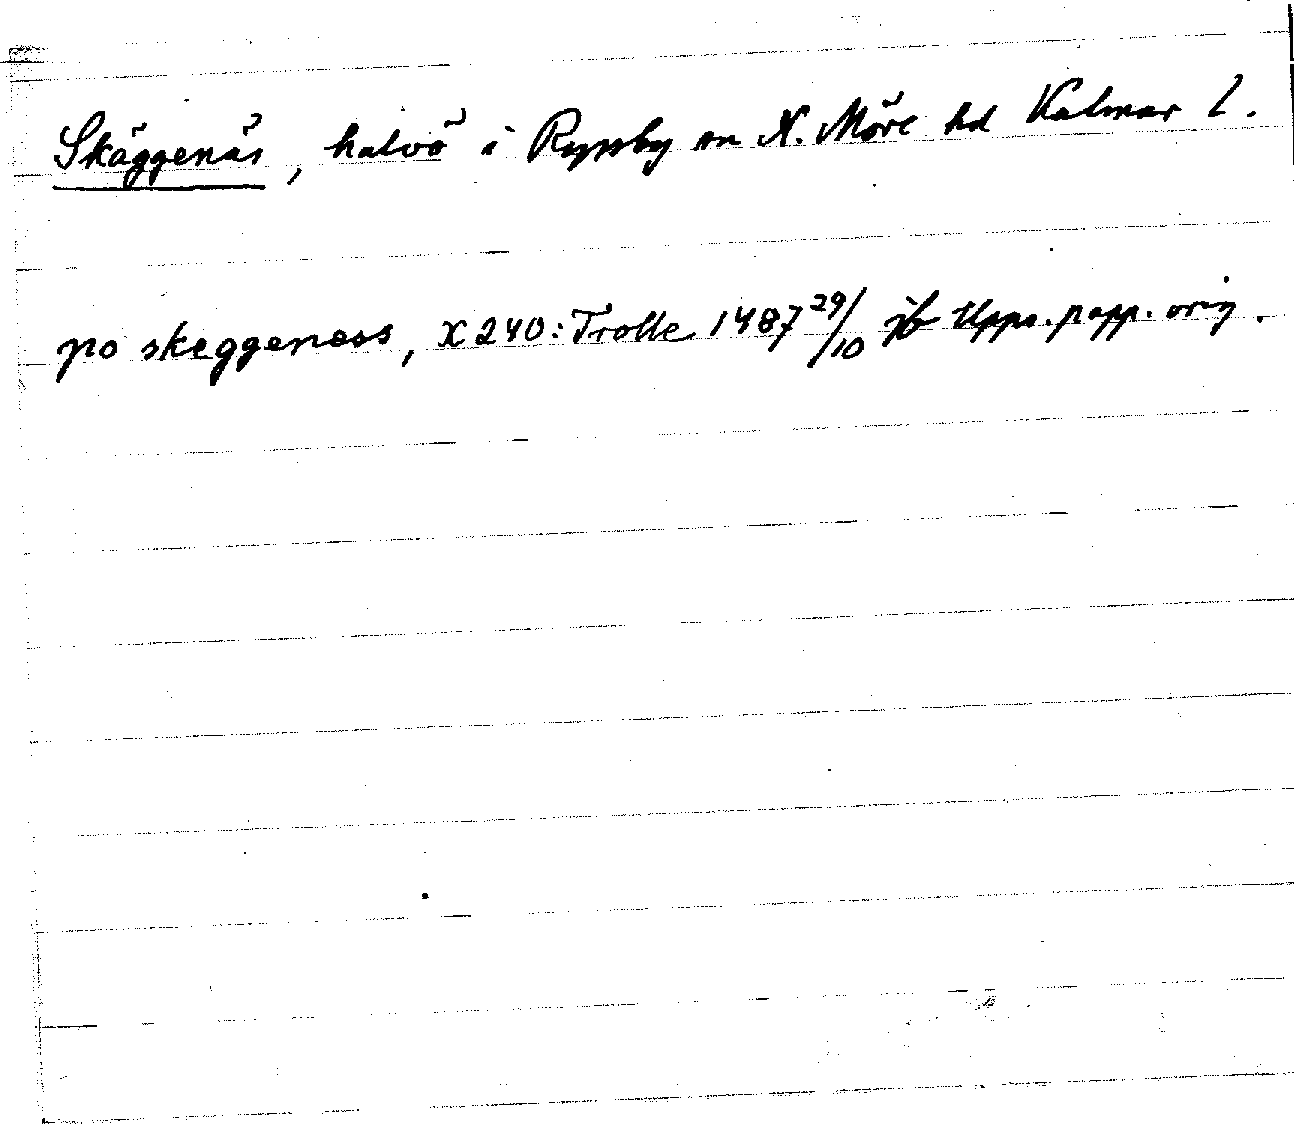 Skäggenäs, halvö i Ryssby sn N. Möre hd Kalmar l.
po skeggeness, X 240: Trolle 1487 29/10 jb Upps. papp. orig.